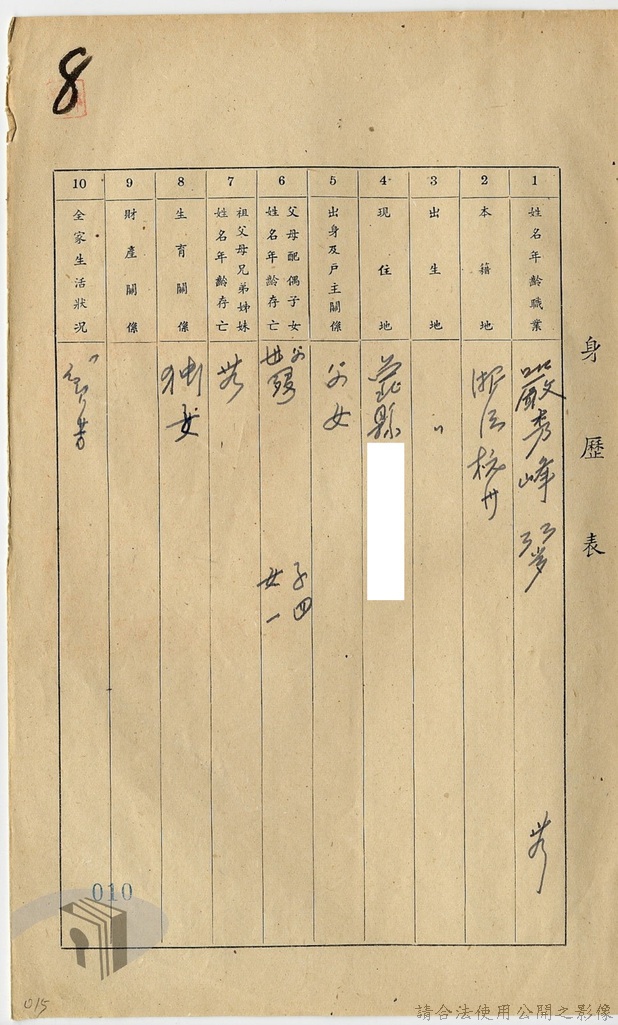 8
身歷表
1
姓名年齡職業
嚴秀峰 33岁 無
2
本籍地
浙江杭州
3
出生地
〃
4
現住地
台北縣
5
出身及戶主關係
父女
6
父母配偶子女
姓名年齡存亡
父
子四
女一
7
祖父母兄弟姊妹
姓名年齡存亡
無
8
生育關係
女
9
財產關係
10
全家生活狀況
010
015
請合法使用公開之影像